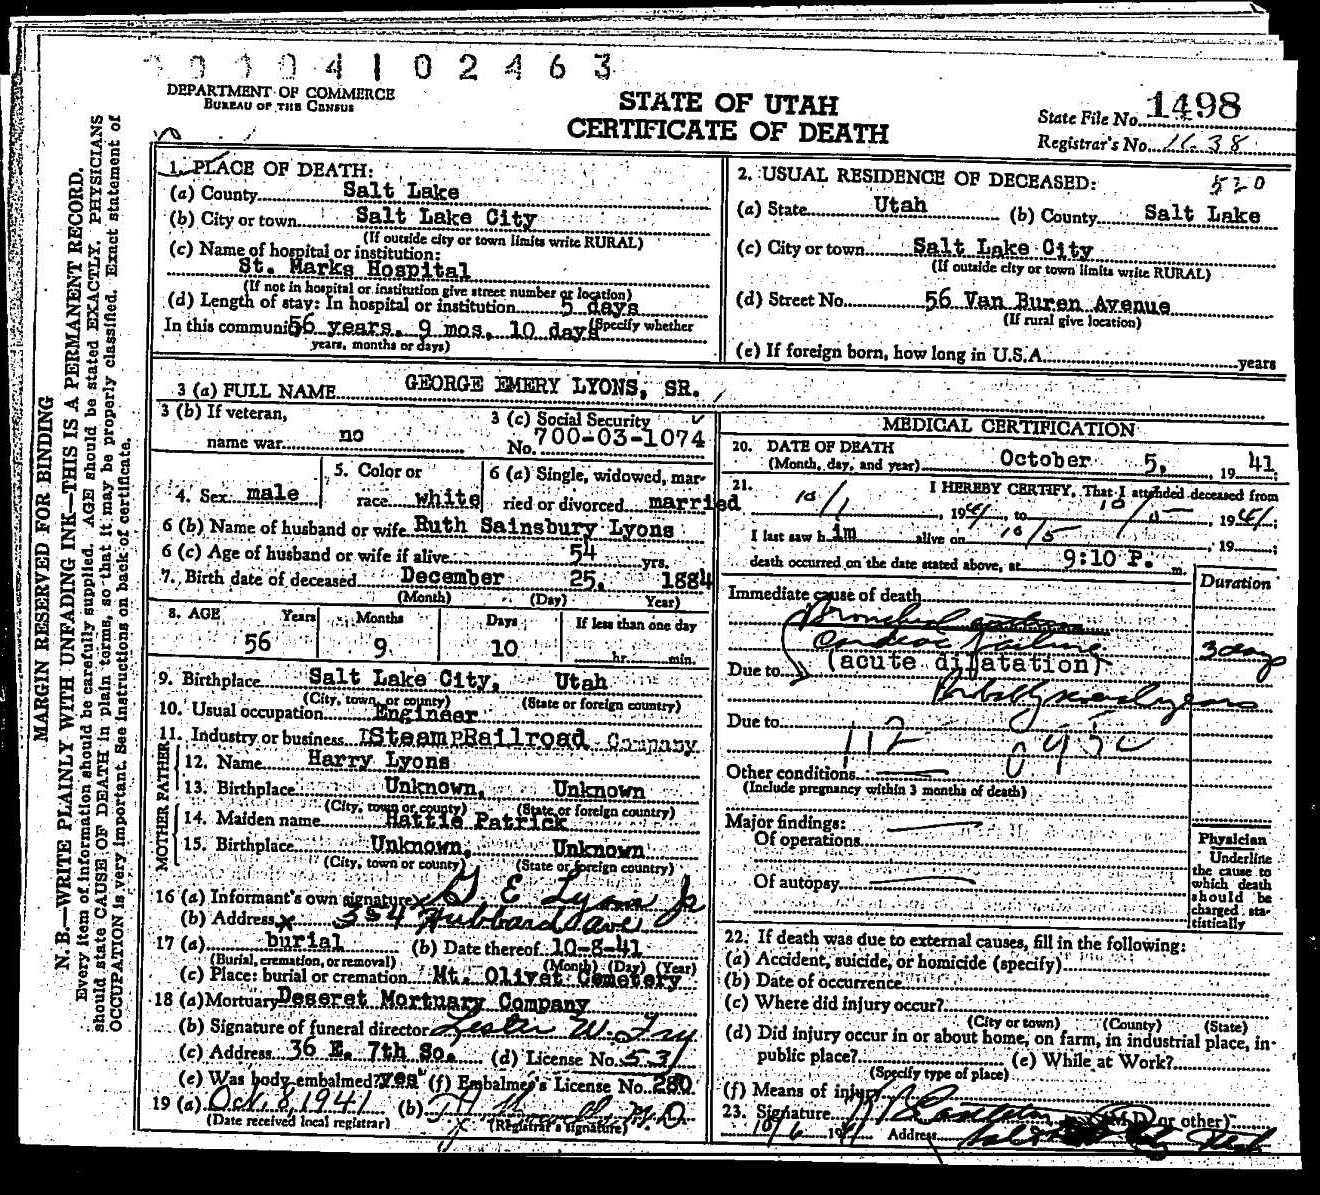 04102463
DEPARTMENT OF COMMERCE
BUREAU OF THE CENSUS
STATE OF UTAH
CERTIFICATE OF DEATH
State File No. 1498
Registrar's No.
MARGIN RESERVED FOR BINDING
N. B.—WRITE PLAINLY WITH UNFADING INK—THIS IS A PERMANENT RECORD.
Every item of information should be carefully supplied. AGE should be stated EXACTLY. PHYSICIANS
should state CAUSE OF DEATH in plain terms, so that it may be properly classified. Exact statement of
OCCUPATION is very important. See instructions on back of certificate.
1. PLACE OF DEATH:
(a) County Salt Lake
(b) City or town Salt Lake City
(If outside city or town limits write RURAL)
(c) Name of hospital or institution:
St. Marks Hospital
(If not in hospital or institution give street number or location)
(d) Length of stay: In hospital or institution 5 days
In this community 56 years, 9 mos, 10 days (Specify whether
years, months or days)
2. USUAL RESIDENCE OF DECEASED: 520
(a) State Utah (b) County Salt Lake
(c) City or town Salt Lake City
(If outside city or town limits write RURAL)
(d) Street No. 56 Van Buren Avenue
(If rural give location)
(e) If foreign born, how long in U.S.A. years
3 (a) FULL NAME GEORGE EMERY LYONS, SR.
3 (b) If veteran,
name war no
3 (c) Social Security
No. 700-03-1074
4. Sex male
5. Color or
race white
6 (a) Single, widowed, mar-
ried or divorced married
6 (b) Name of husband or wife Ruth Sainsbury Lyons
6 (c) Age of husband or wife if alive 54 yrs.
7. Birth date of deceased December 25, 1884
(Month) (Day) Year)
8. AGE Years Months Days If less than one day
56 9 10 hr. min.
9. Birthplace Salt Lake City, Utah
(City, town, or county) (State or foreign country)
10. Usual occupation Engineer
11. Industry or business Steam Railroad Company
FATHER
12. Name Harry Lyons
13. Birthplace Unknown, Unknown
(City, town or county) (State or foreign country)
MOTHER
14. Maiden name Hattie Patrick
15. Birthplace Unknown, Unknown
(City, town or county) (State or foreign country)
16 (a) Informant's own signature G E Lyons Jr
(b) Address 354 Hubbard ave
17 (a) burial (b) Date thereof 10-8-41
(Burial, cremation, or removal) (Month) (Day) (Year)
(c) Place: burial or cremation Mt. Olivet Cemetery
18 (a) Mortuary Deseret Mortuary Company
(b) Signature of funeral director Lester W. Fry
(c) Address 36 E. 7th So. (d) License No. 531
(e) Was body embalmed? yes (f) Embalmer's License No. 280
19 (a) Oct. 8, 1941 (b) M.D.
(Date received local registrar) (Registrar's signature)
MEDICAL CERTIFICATION
20. DATE OF DEATH
(Month, day, and year) October 5, 19 41;
21. I HEREBY CERTIFY, That I attended deceased from
10/1, 1941, to 10/5, 1941;
I last saw h im alive on 10/5, 19 ;
death occurred on the date stated above, at 9:10 P. m.
Duration
Immediate cause of death
Bronchial asthma
Cardiac failure 3 days
Due to (acute dilatation)
Probably years
Due to
112 095c
Other conditions
(Include pregnancy within 3 months of death)
Major findings:
Of operations
Of autopsy
Physician
Underline
the cause to
which death
should be
charged sta-
tistically
22. If death was due to external causes, fill in the following:
(a) Accident, suicide, or homicide (specify)
(b) Date of occurrence
(c) Where did injury occur?
(City or town) (County) (State)
(d) Did injury occur in or about home, on farm, in industrial place, in
public place? (e) While at Work?
(Specify type of place)
(f) Means of injury
23. Signature (M.D. or other)
10/6 1941 Address